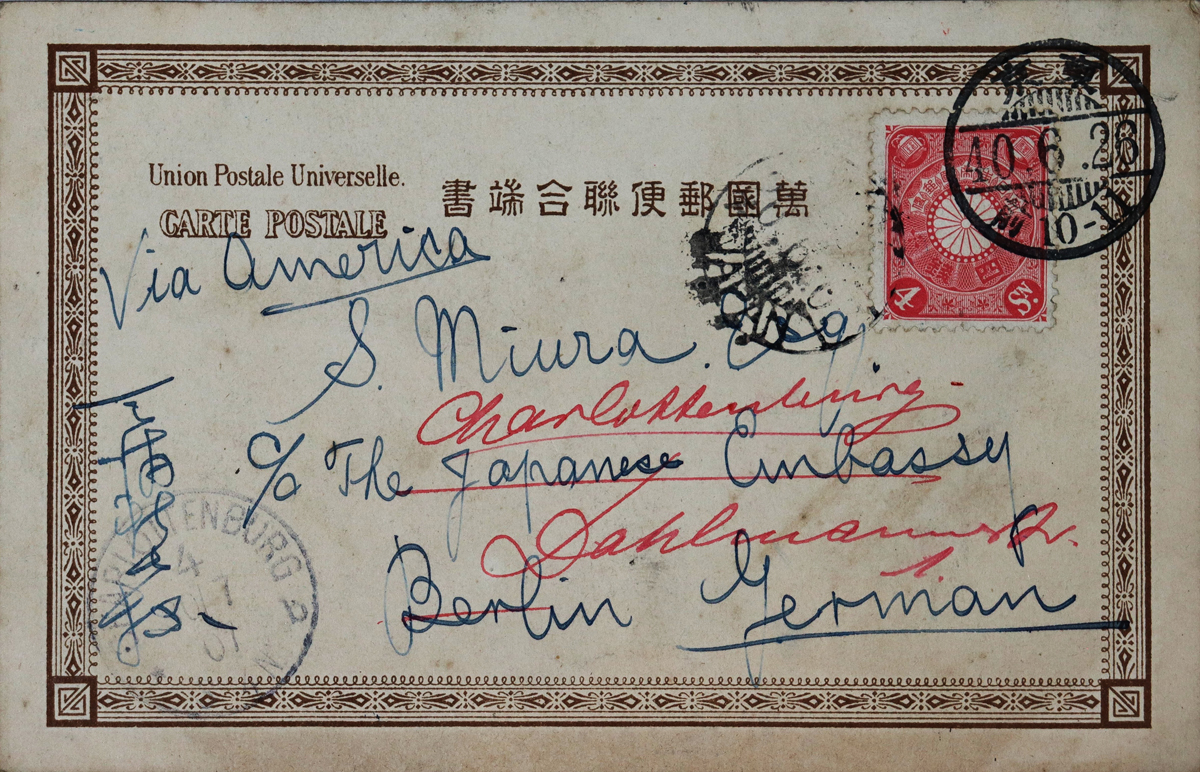 Union Postale Universelle.
CARTE POSTALE
萬國郵便聯合端書
東京
40.6.28
10-11
4 Sn.
JAPAN
Via America
S. Miura. Esq.
Charlottenburg.
c/o The Japanese Embassy
Dahlmannstr.
Berlin German
三浦
CHARLOTTENBURG 2